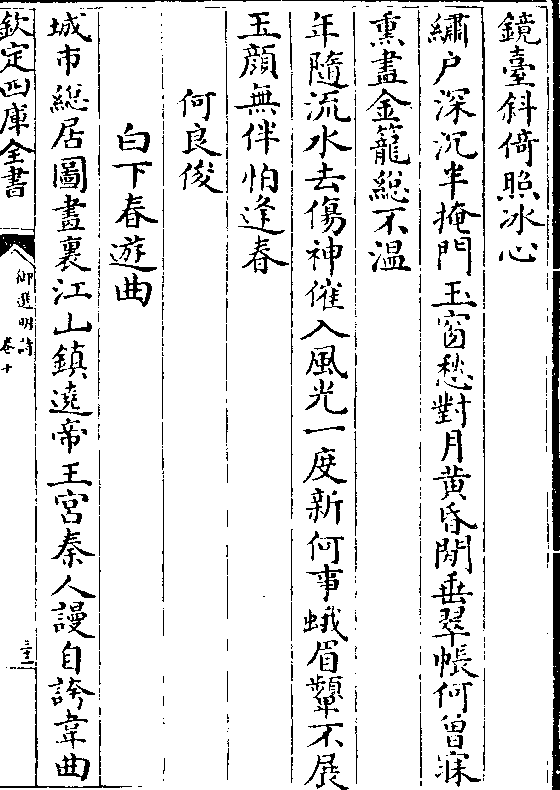 鏡臺斜倚照冰心
繡户深沉半掩門玉窗愁對月黄昏閒垂翠帳何曾寐
熏盡金籠總不溫
年隨流水去傷神催入風光一度新何事蛾眉顰不展
玉顔無伴怕逢春
何良俊
白下春遊曲
城市總居圖畫裏江山鎮遶帝王宫秦人謾自誇韋曲
欽定四庫全書
御選明詩
卷十